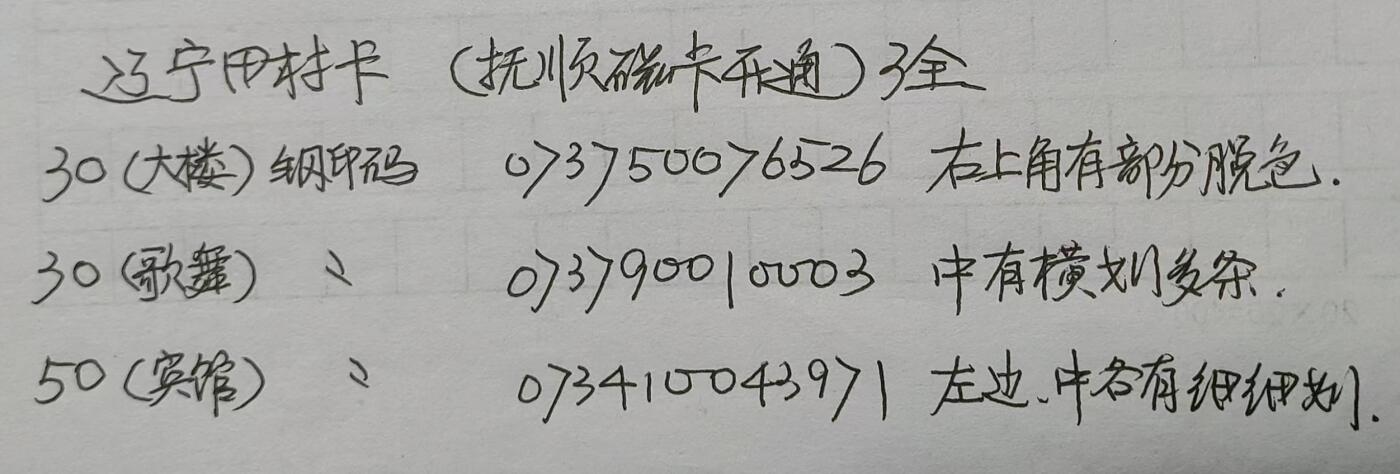 辽宁田村卡 (抚顺磁卡开通) 3全
30 (大楼) 钢印码 073750076526 右上角有部分脱色.
30 (歌舞) 〃 073790010003 中有横划多条.
50 (宾馆) 〃 073410043971 左边、中各有细细划.